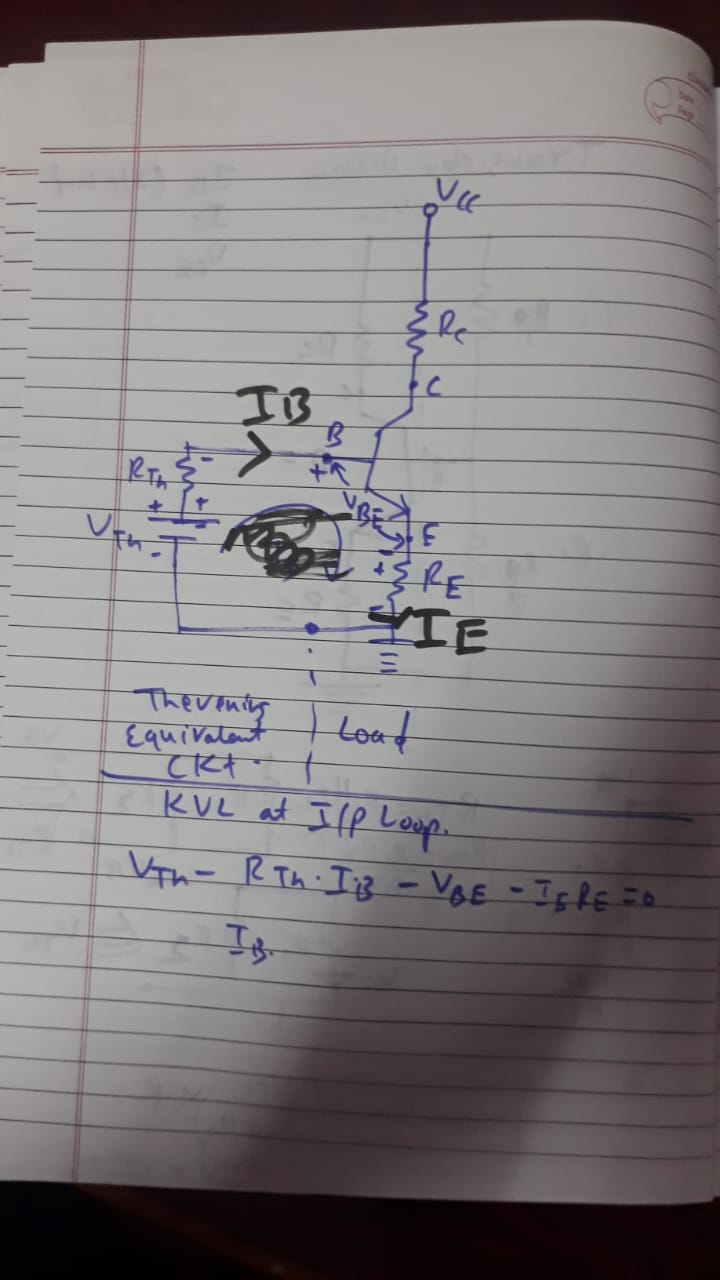 VCC
RC
C
IB
B
RTh
-
+
VBE
+
+
VTh
-
E
-
+
RE
-
IE
Thevenins
Equivalent
Load
CKt.
KVL at I/P Loop.
VTh - RTh.IB - VBE - IERE = 0
IB.